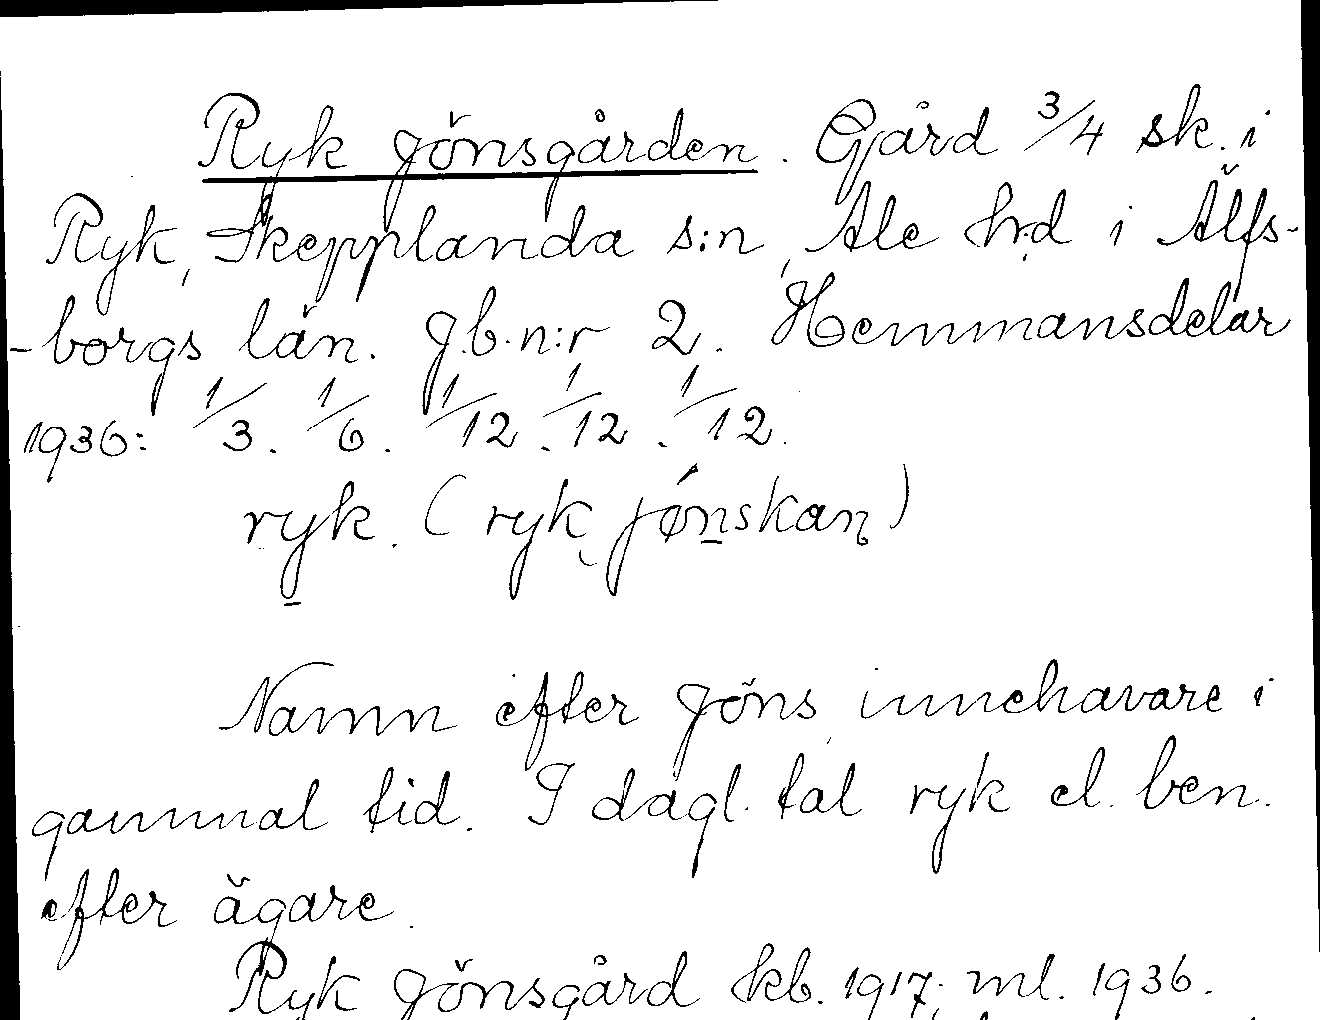 Ryk Jönsgården. Gård 3/4 sk. i
Ryk, Skepplanda s:n, Ale hrd i Älfs-
-borgs län. J.b.n:r 2. Hemmansdelar
1936: 1/3. 1/6. 1/12. 1/12. 1/12.
ryk. (ryk jǿnskan)
Namn efter Jöns, innehavare i
gammal tid. I dagl. tal ryk el. ben.
efter ägare.
Ryk Jönsgård kb. 1917; ml. 1936.